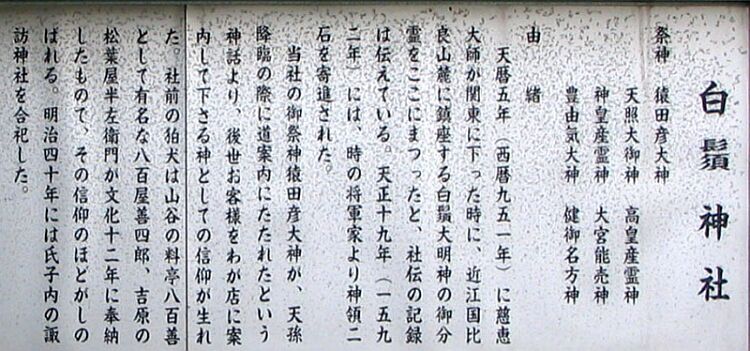 白鬚神社
祭神　猿田彦大神
天照大御神　高皇産霊神
神皇産霊神　大宮能売神
豊由気大神　健御名方神
由緒
天暦五年（西暦九五一年）に慈恵
大師が関東に下った時に、近江国比
良山麓に鎮座する白鬚大明神の御分
霊をここにまつったと、社伝の記録
は伝えている。天正十九年（一五九
二年）には、時の将軍家より神領二
石を寄進された。
当社の御祭神猿田彦大神が、天孫
降臨の際に道案内にたたれたという
神話より、後世お客様をわが店に案
内して下さる神としての信仰が生れ
た。社前の狛犬は山谷の料亭八百善
として有名な八百屋善四郎、吉原の
松葉屋半左衛門が文化十二年に奉納
したもので、その信仰のほどがしの
ばれる。明治四十年には氏子内の諏
訪神社を合祀した。